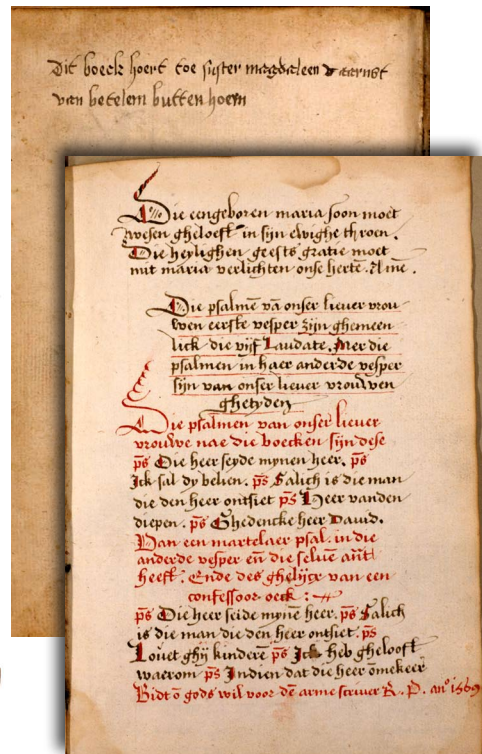 Dit boeck hoert toe suster magdaleen daarnst
van betelem butten hoern
Die eengeboren maria soon moet
wesen gheloeft in sijn ewighe throen.
Die heylighen geests gratie moet
mit maria verlichten onse hertē. Amē.
Die psalmē vā onser liever vrou
wen eerste vesper zijn ghemeen
lick die vijf Laudate. Mer die
psalmen in haer anderde vesper
sijn van onser liever vrouwen
ghetyden
Die psalmen van onser liever
vrouwe nae die boecken sijn dese
ps Die heer seyde mynen heer. ps
Ick sal dy belien. ps Salich is die man
die den heer ontsiet ps Heer vanden
diepen. ps Ghedencke heer David.
Van een martelaer psal. in die
anderde vesper eñ die selue añt
heeft. Ende des ghelijcx van een
confessoor oeck :
ps Die heer seide mynē heer. ps Salich
is die man die den heer ontsiet. ps
Louet ghij kinderē ps Ick heb ghelooft
waerom ps Indien dat die heer ōmekeer
Bidt ō gods wil voor dē arme scriver R. P. anº 1569